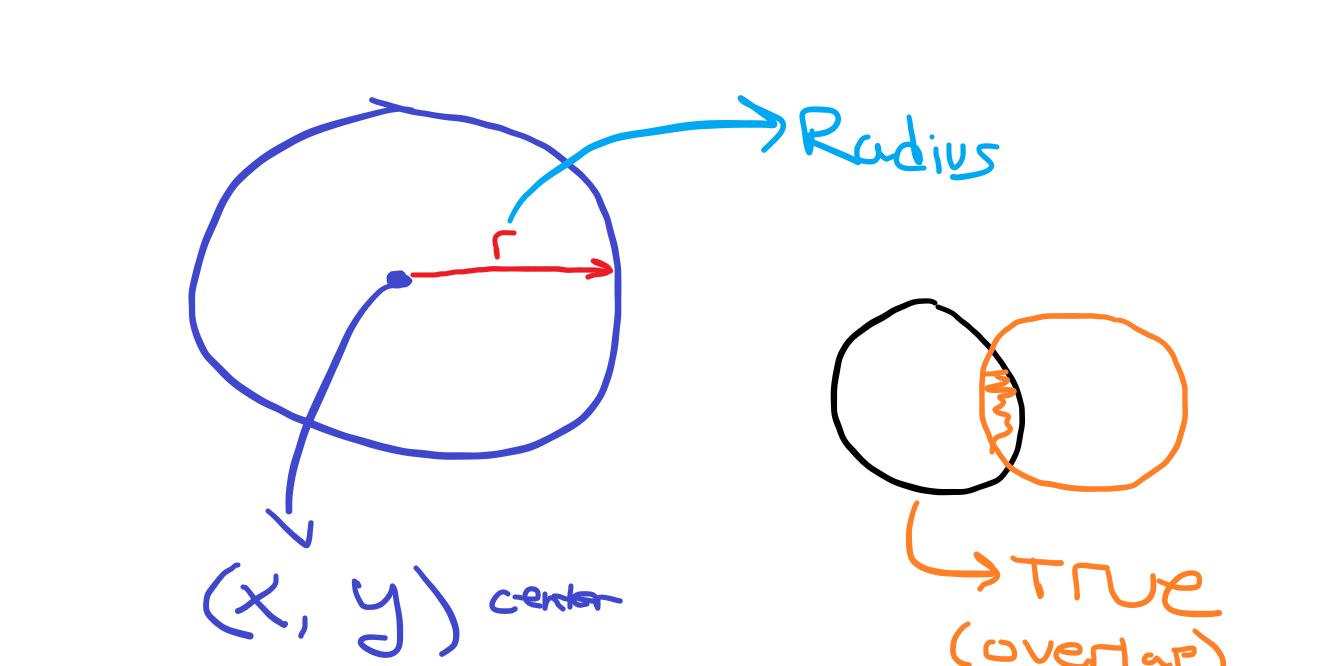 Radius
r
(x, y) center
True
(overlap)